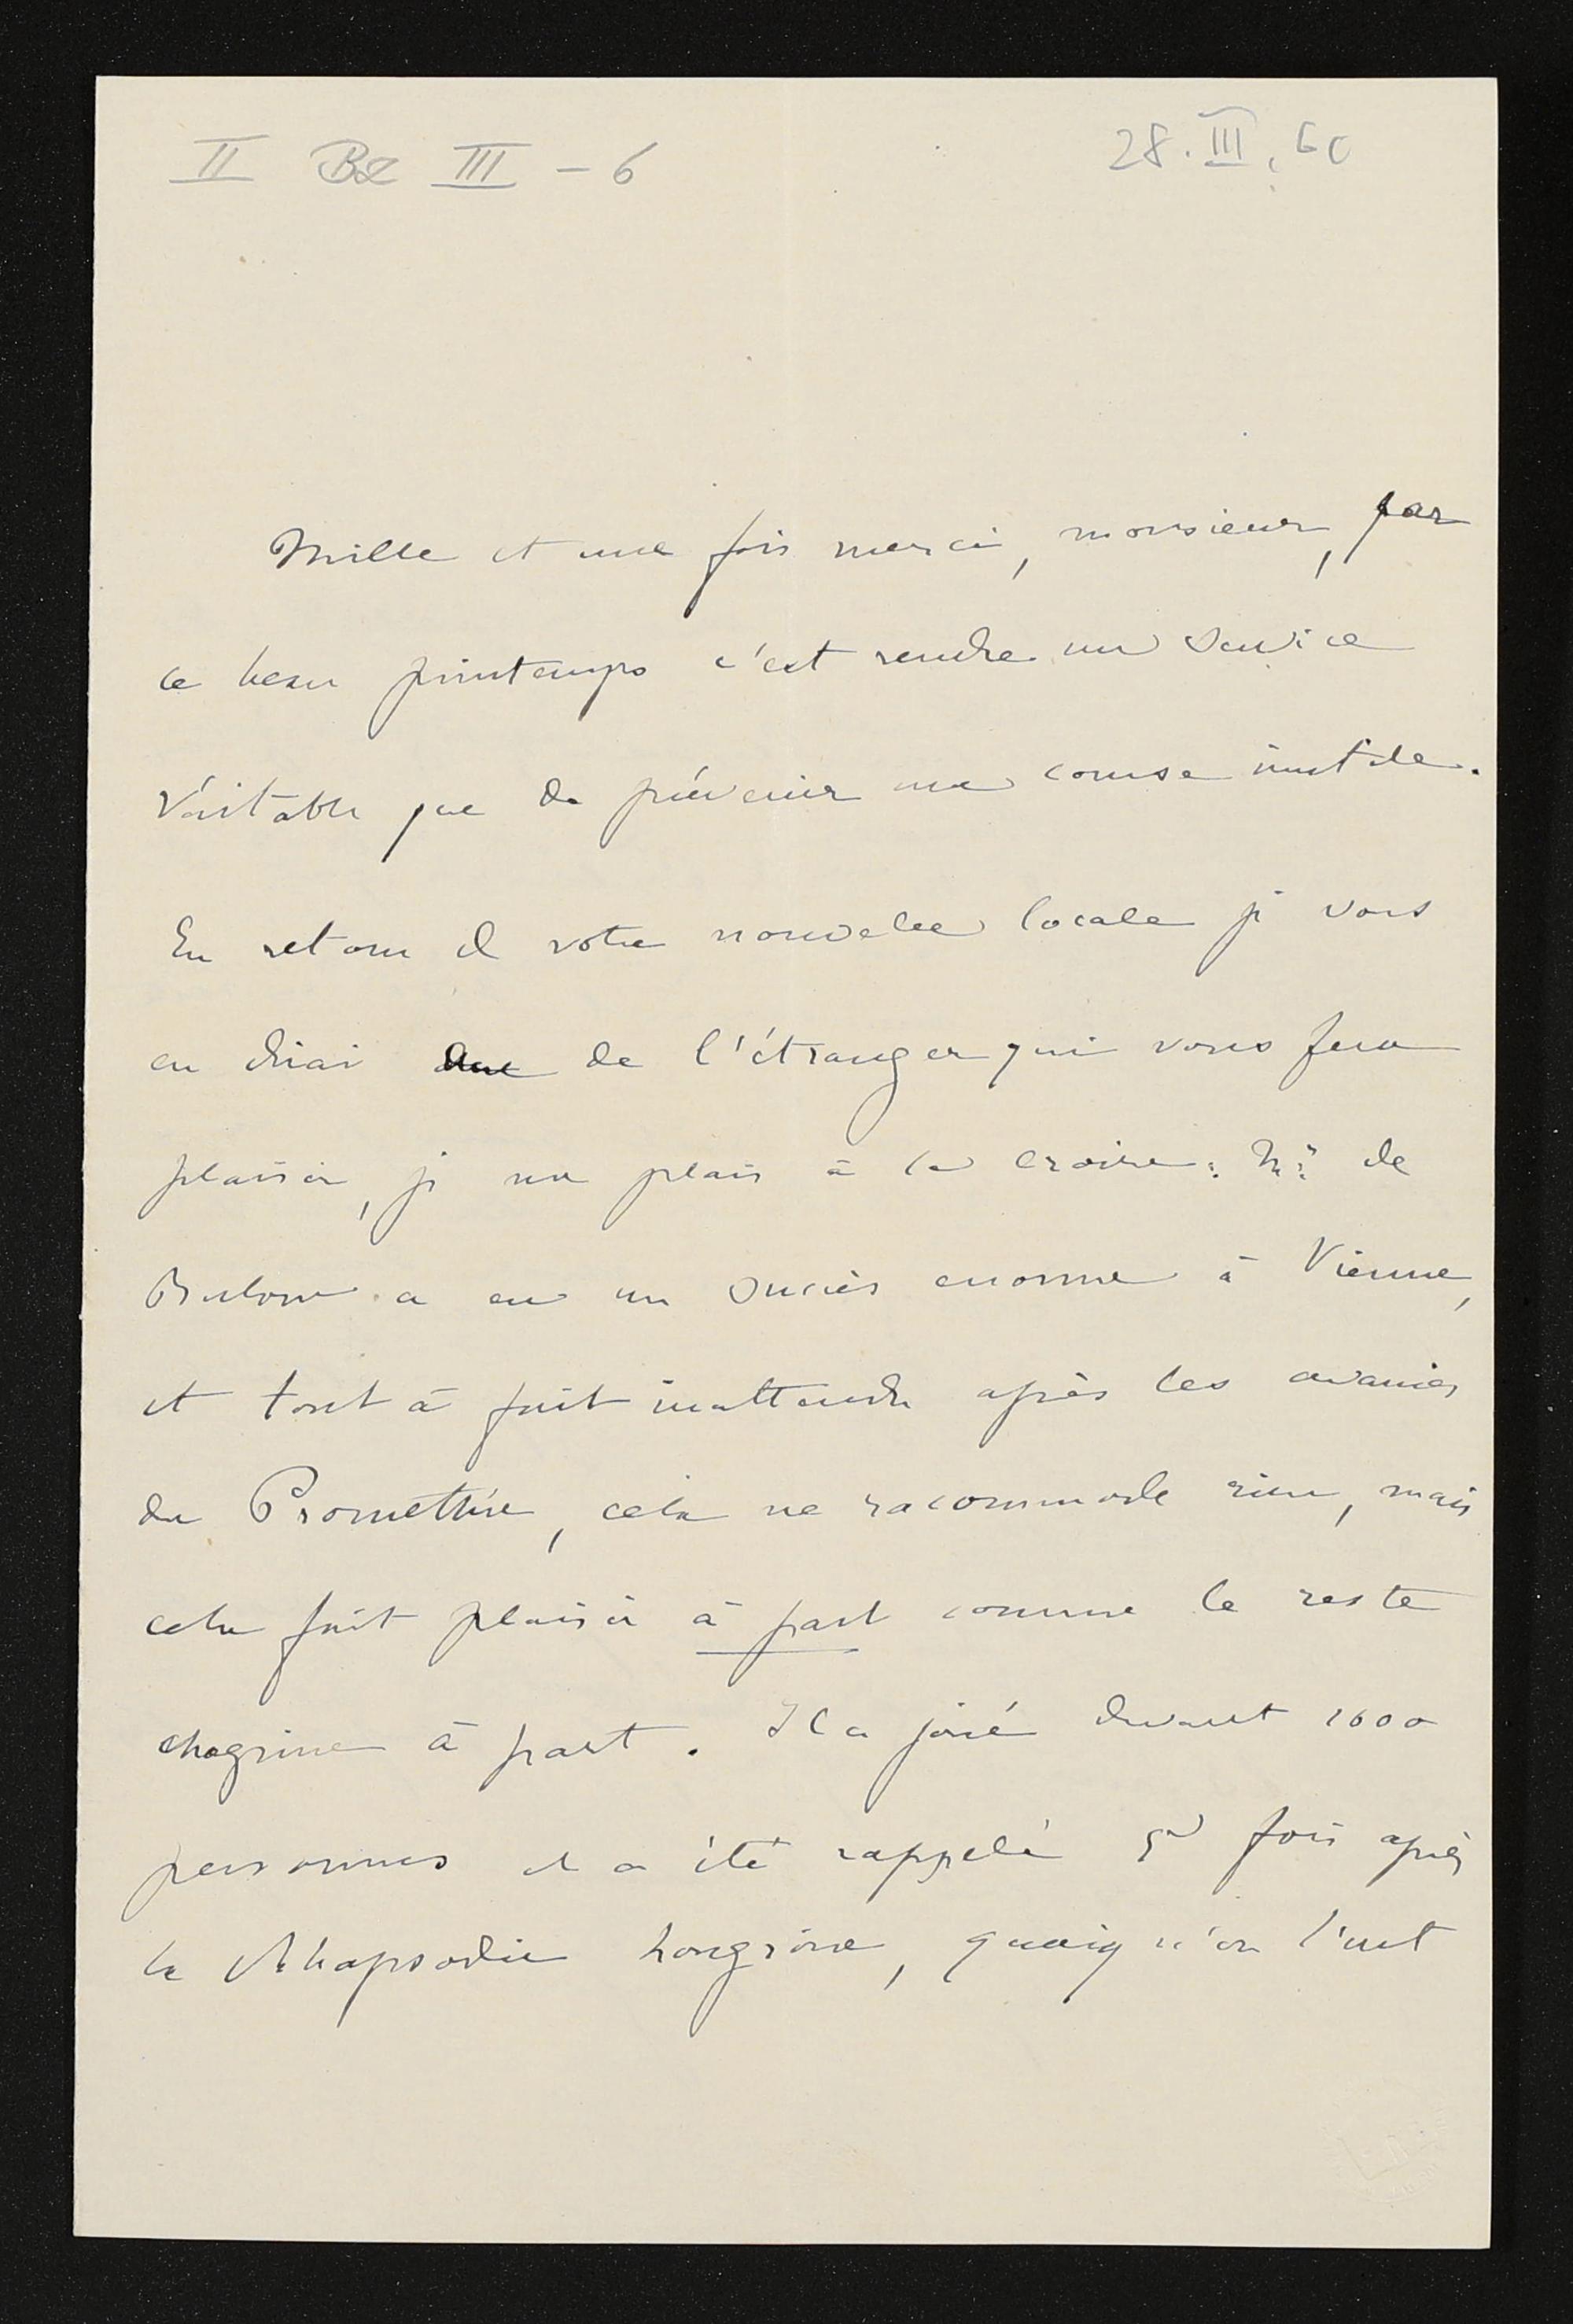 II BL III - 6
28. III. 60
Mille et une fois merci, monsieur, par
ce beau printemps c'est rendre un service
véritable que de prévenir une course inutile.
En retour de votre nouvelle locale je vous
en dirai de l'étranger qui vous fera
plaisir, je me plais à le croire: Mr de
Bulow a eu un succès enorme à Vienne,
et tout à fait inattendu après les avanies
du Promethée, cela ne racommode rien, mais
cela fait plaisir à part comme le reste
chagrine à part. Il a joué devant 1600
personnes et a été rappelé 5 fois après
la Rhapsodie hongroise, quoiqu'on l'eut